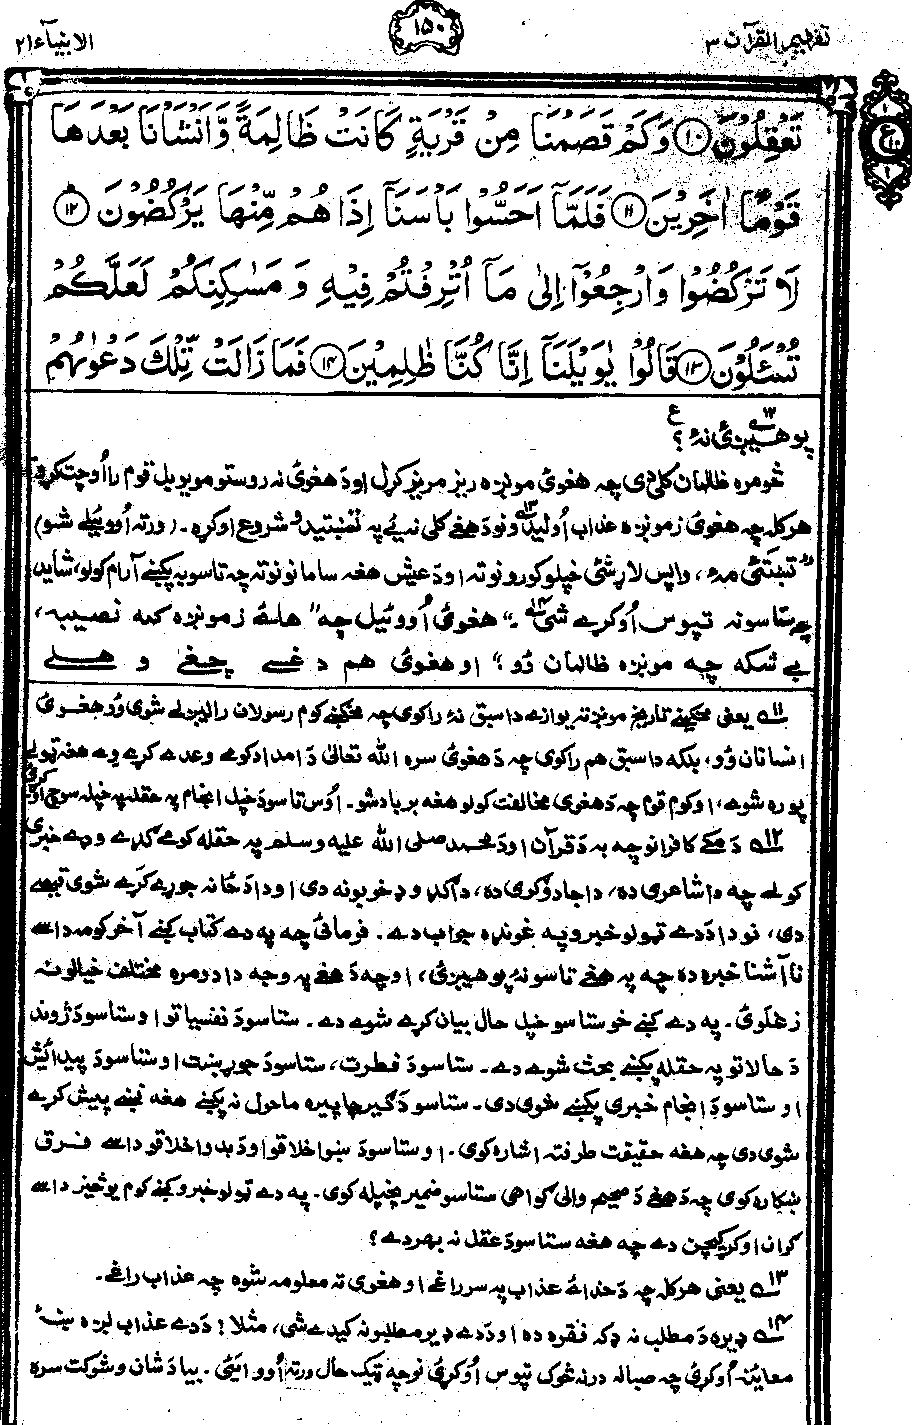 تفہیم القرآن ۳
۱۵۰
الانبیآء ۲۱
تَعْقِلُوْنَ ⑩ وَكَمْ قَصَمْنَا مِنْ قَرْيَةٍ كَانَتْ ظَالِمَةً وَّاَنْشَاْنَا بَعْدَهَا
قَوْمًا اٰخَرِيْنَ ⑪ فَلَمَّآ اَحَسُّوْا بَاْسَنَآ اِذَا هُمْ مِّنْهَا يَرْكُضُوْنَ ⑫
لَا تَرْكُضُوْا وَارْجِعُوْٓا اِلٰى مَآ اُتْرِفْتُمْ فِيْهِ وَ مَسٰكِنِكُمْ لَعَلَّكُمْ
تُسْـَٔلُوْنَ ⑬ قَالُوْا يٰوَيْلَنَآ اِنَّا كُنَّا ظٰلِمِيْنَ ⑭ فَمَا زَالَتْ تِّلْكَ دَعْوٰىهُمْ
پوهیږئ نۀ؟
څومره ظالمان کلی دی چہ هغوئ مونږه ریز مریز کړل او دَ هغوئ نہ روستو مو یو بل قوم را اُوچت کړو
هر کلہ چہ هغوئ زمونږه عذاب اُولیدو نو دَ هغے کلی نہ ئے پہ تښتید و شروع اوکړه۔ (ورتہ اُووئیلے شو)
تښتئ مہ، واپس لاړشئ خپلو کورونو تہ او دَ عیش هغہ سامانونو تہ چہ تاسو بہ پکښے آرام کولو، شاید
چہ ستاسو نہ تپوس اُوکړے شی۔" هغوئ اُووئیل چہ "هائے زمونږه کم نصیبہ،
بے شکہ چہ مونږه ظالمان وُو" او هغوئ هم دغسے چغے و هلے
۱۱ یعنی مخکښے تاریخ مونږ تہ یوازے دا سبق نۀ راکوی چہ مخکښے کوم رسولان رالیږلے شوی وُو هغوئ
انسانان وُو، بلکہ دا سبق هم راکوی چہ دَ هغوئ سره اللہ تعالیٰ دَ امداد کومے وعدے کړے وے هغہ ټولے
پوره شوے، او کوم قوم چہ دَ هغوی مخالفت کولو هغہ برباد شو۔ اُوس تاسو دَ خپل انجام پہ حقلہ پہ خپلہ سوچ اوکړئ
۱۲ دَ مکے کافرانو چہ بہ دَ قرآن او دَ محمد صلی اللہ علیہ وسلم پہ حقلہ کومے ګډے وډے خبرے
کولے چہ دا شاعری ده، دا جادوګری ده، دا ګډ وډ خوبونہ دی او دا دَ ځانہ جوړے کړے شوی قیصے
دی، نو دا دَ دے ټولو خبرو یہ غونډه جواب دے۔ فرمائی چہ پہ دے کتاب کښے آخر کومہ داسے
ناآشنا خبره ده چہ پہ هغے تاسو نۀ پوهیږئ، اوچہ دَ هغے پہ وجہ دا دومره مختلف خیالونہ
زغلوئ۔ پہ دے کښے خو ستاسو خپل حال بیان کړے شوے دے۔ ستاسو دَ نفسیاتو او ستاسو دَ ژوند
دَ حالاتو پہ حقلہ پکښے بحث شوے دے۔ ستاسو دَ فطرت، ستاسو دَ جوړښت او ستاسو دَ پیدائش
او ستاسو دَ انجام خبری پکښے شوی دی۔ ستاسو دَ ګیر چاپیره ماحول نہ پکښے هغہ نښے پیش کړے
شوی دی چہ هغہ حقیقت طرفتہ اشاره کوی۔ او ستاسو دَ ښو اخلاقو او دَ بدو اخلاقو داسے فرق
ښکاره کوی چہ دَ هغے دَ صحیح والی ګواهی ستاسو ضمیر پخپلہ کوی۔ پہ دے ټولو خبرو کښے کوم یو څیز داسے
ګران او کړکیچن دے چہ هغہ ستاسو دَ عقل نہ بهر دے؟
۱۳ یعنی هر کلہ چہ دَ خدائے عذاب پہ سر راغے او هغوی تہ معلومہ شوه چہ عذاب راغے۔
۱۴ ډیره دَ مطلب نہ ډکہ فقره ده او دَ دے ډیر مطلبونہ کیدے شی، مثلا: دَ دے عذاب لږه ښہ
معاینہ اُوکړئ چہ صبا لہ درنہ څوک تپوس اُوکړی نو چہ ټیک حال ورتہ اُووایئی۔ بیا دَ شان و شوکت سره